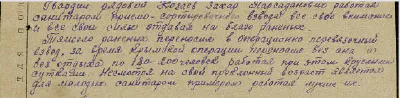 Гвардии рядовой Козаев Захар Марсаданович работая
санитаром приемо-сортировочного взвода все свое внимание
и все свои силы отдавал на благо раненых.
Тяжело раненых переносил в операционно перевязочный
взвод, за время Крымской операции переносил без сна и
без отдыха по 180-200 человек работая при этом круглыми
сутками. Несмотря на свой преклонный возраст является
для молодых санитаром примером работая лучше их.
для по